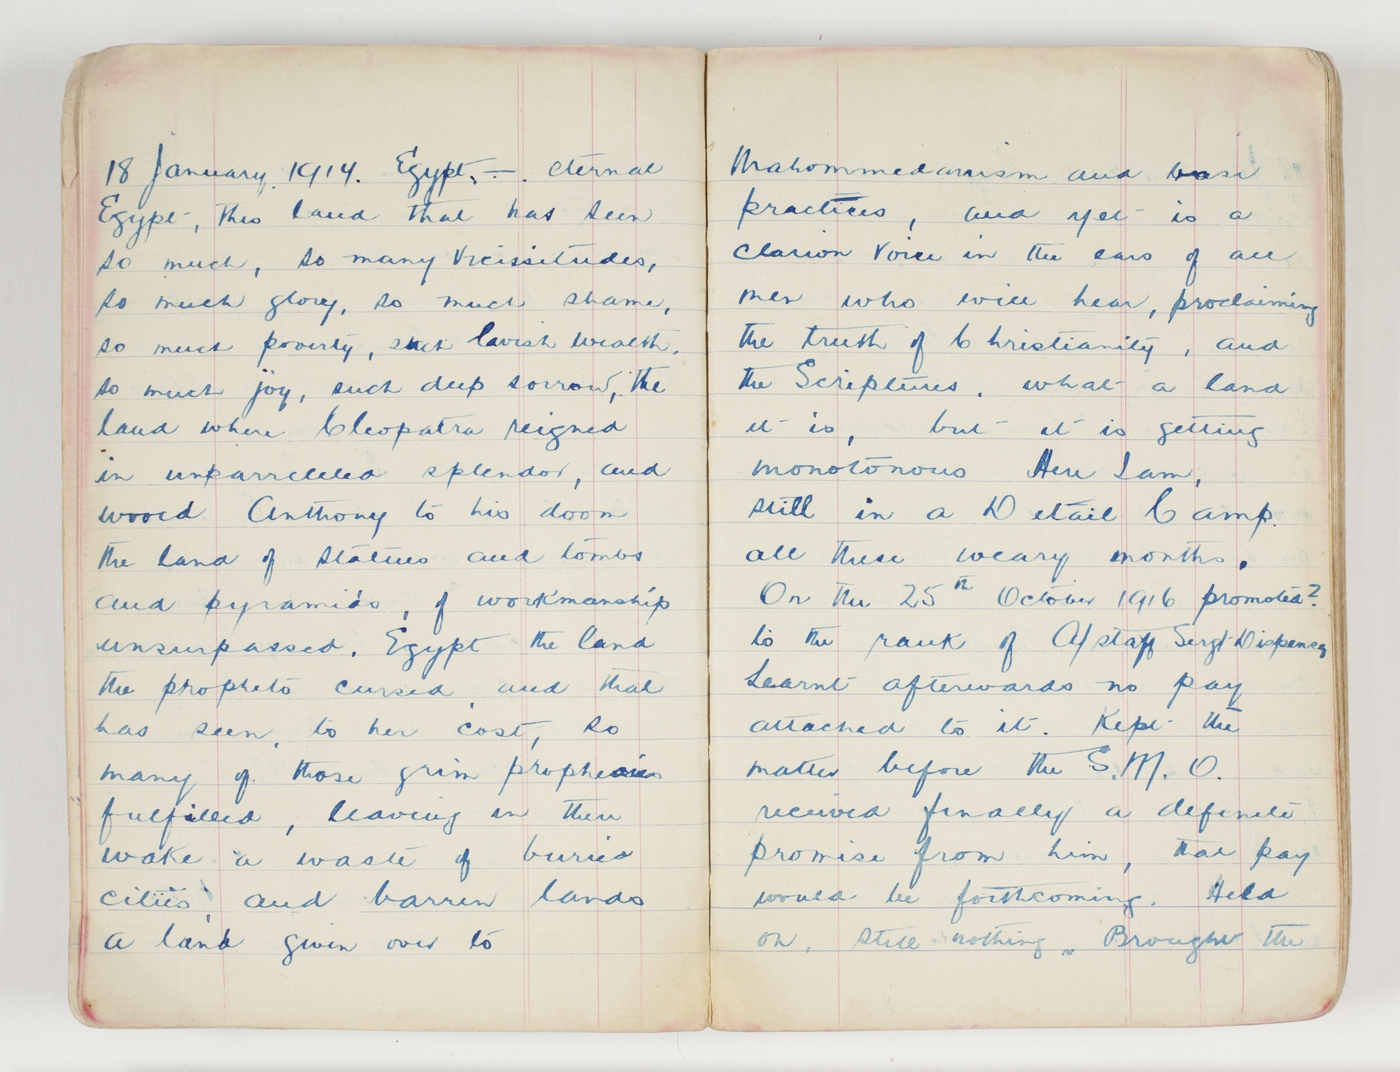 18 January. 1914. Egypt, — . eternal
Egypt, this land that has seen
so much, so many vicissitudes,
so much glory, so much shame,
so much poverty, such lavish wealth,
so much joy, such deep sorrow, the
land where Cleopatra reigned
in unparrelled splendor, and
wooed Anthony to his doom
the land of statues and tombs
and pyramids, of workmanship
unsurpassed. Egypt the land
the prophets cursed, and that
has seen, to her cost, so
many of those grim prophecies
fulfilled, leaving in their
wake a waste of buried
cities, and barren lands
a land given over to
Mahommedanism and base
practices, and yet is a
clarion voice in the ears of all
men who will hear, proclaiming
the truth of Christianity, and
the Scriptures. what a land
it is, but it is getting
monotonous Here I am,
still in a Detail Camp.
all these weary months.
On the 25th October 1916 promoted?
to the rank of A/staff Sergt Dispenser
Learnt afterwards no pay
attached to it. Kept the
matter before the S.M.O.
received finally a definite
promise from him, that pay
would be forthcoming. Held
on, still nothing. Brought the